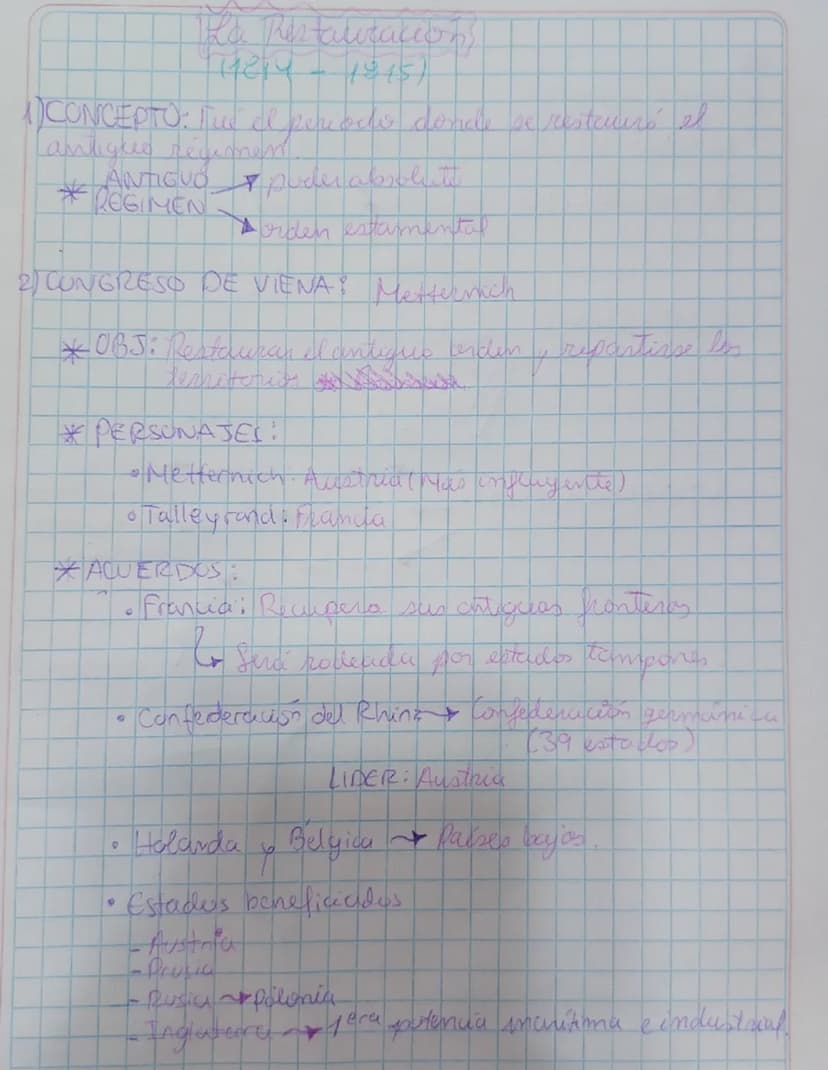 La Restauración
(1814 - 1815)
1) CONCEPTO: Fue el periodo donde se restauró el
antiguo régimen.
* ANTIGUO → poder absoluto
REGIMEN → orden estamental
2) CONGRESO DE VIENA: Metternich
* OBJ: Restaurar el antiguo orden y repartirse los
territorios
* PERSONAJES:
• Metternich: Austria (Más influyente)
• Talleyrand: Francia
* ACUERDOS:
• Francia: Recupera sus antiguas fronteras
↳ Será rodeada por estados tampones
• Confederación del Rhin → Confederación germánica
(39 estados)
LIDER: Austria
• Holanda y Bélgica → Países bajos.
• Estados beneficiados
- Austria
- Prusia
- Rusia → polonia
- Inglaterra → 1era potencia marítima e industrial.